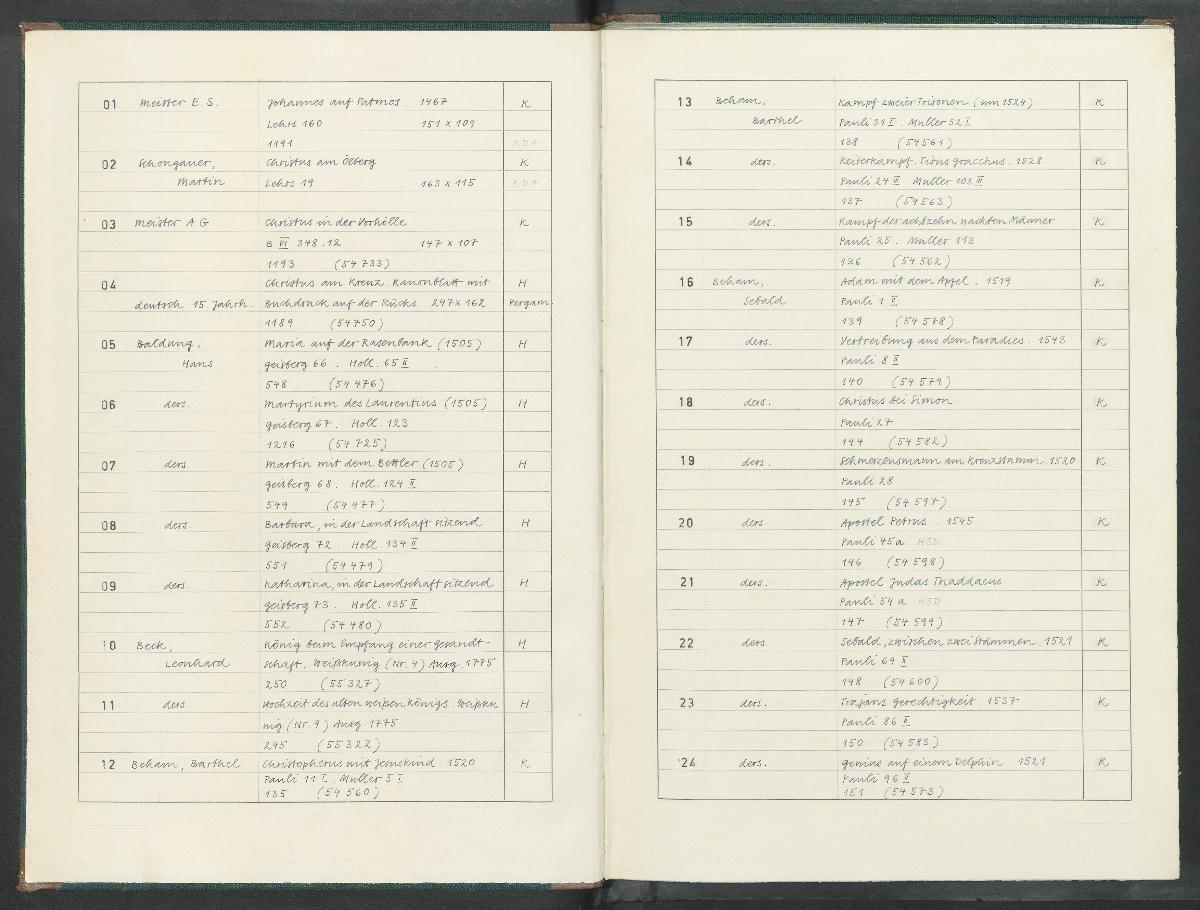 01 Meister E. S. Johannes auf Patmos. 1467 K
Lehrs 160 151 x 109
1191 KDA
02 Schongauer, Christus am Ölberg K
Martin Lehrs 19 163 x 115 KDA
03 Meister A G Christus in der Vorhölle K
B. VI 348.12 147 x 107
1193 (54733)
04 Christus am Kreuz. Kanonblatt mit H
deutsch 15. Jahrh. Buchdruck auf der Rücks. 247 x 162 Pergam.
1189 (54750)
05 Baldung, Maria auf der Rasenbank (1505) H
Hans Geisberg 66. Holl. 65 II
548 (54476)
06 ders. Martyrium des Laurentius (1505) H
Geisberg 67. Holl. 123
1216 (54725)
07 ders. Martin mit dem Bettler (1505) H
Geisberg 68. Holl. 124 II
549 (54477)
08 ders. Barbara, in der Landschaft sitzend H
Geisberg 72. Holl. 134 II
551 (54479)
09 ders. Katharina, in der Landschaft sitzend H
Geisberg 73. Holl. 135 II
552 (54480)
10 Beck, König beim Empfang einer Gesandt- H
Leonhard schaft. Weißkunig (Nr. 4) Ausg. 1775
250 (55327)
11 ders. Hochzeit des alten weißen Königs. Weißku- H
nig (Nr. 9) Ausg. 1775
245 (55322)
12 Beham, Barthel Christopherus mit Jesuskind. 1520 K
Pauli 11 I. Muller 5 I
135 (54560)
13 Beham, Kampf zweier Tritonen (um 1524) K
Barthel Pauli 31 I. Muller 52 I
138 (54561)
14 ders. Reiterkampf. Titus Gracchus. 1528 K
Pauli 24 II Muller 103 II
137 (54563)
15 ders. Kampf der achtzehn nackten Männer K
Pauli 25. Muller 113
136 (54562)
16 Beham, Adam mit dem Apfel. 1519 K
Sebald Pauli 1 II
139 (54578)
17 ders. Vertreibung aus dem Paradies. 1543 K
Pauli 8 II
140 (54579)
18 ders. Christus bei Simon K
Pauli 27
144 (54582)
19 ders. Schmerzensmann am Kreuzstamm. 1520 K
Pauli 28
145 (54597)
20 ders. Apostel Petrus. 1545 K
Pauli 45a HSD
146 (54598)
21 ders. Apostel Judas Thaddaeus K
Pauli 54a HSD
147 (54599)
22 ders. Sebald, zwischen zwei Stämmen. 1521 K
Pauli 69 II
148 (54600)
23 ders. Trajans Gerechtigkeit 1537 K
Pauli 86 II
150 (54583)
24 ders. Genius auf einem Delphin. 1521 K
Pauli 96 II
151 (54573)